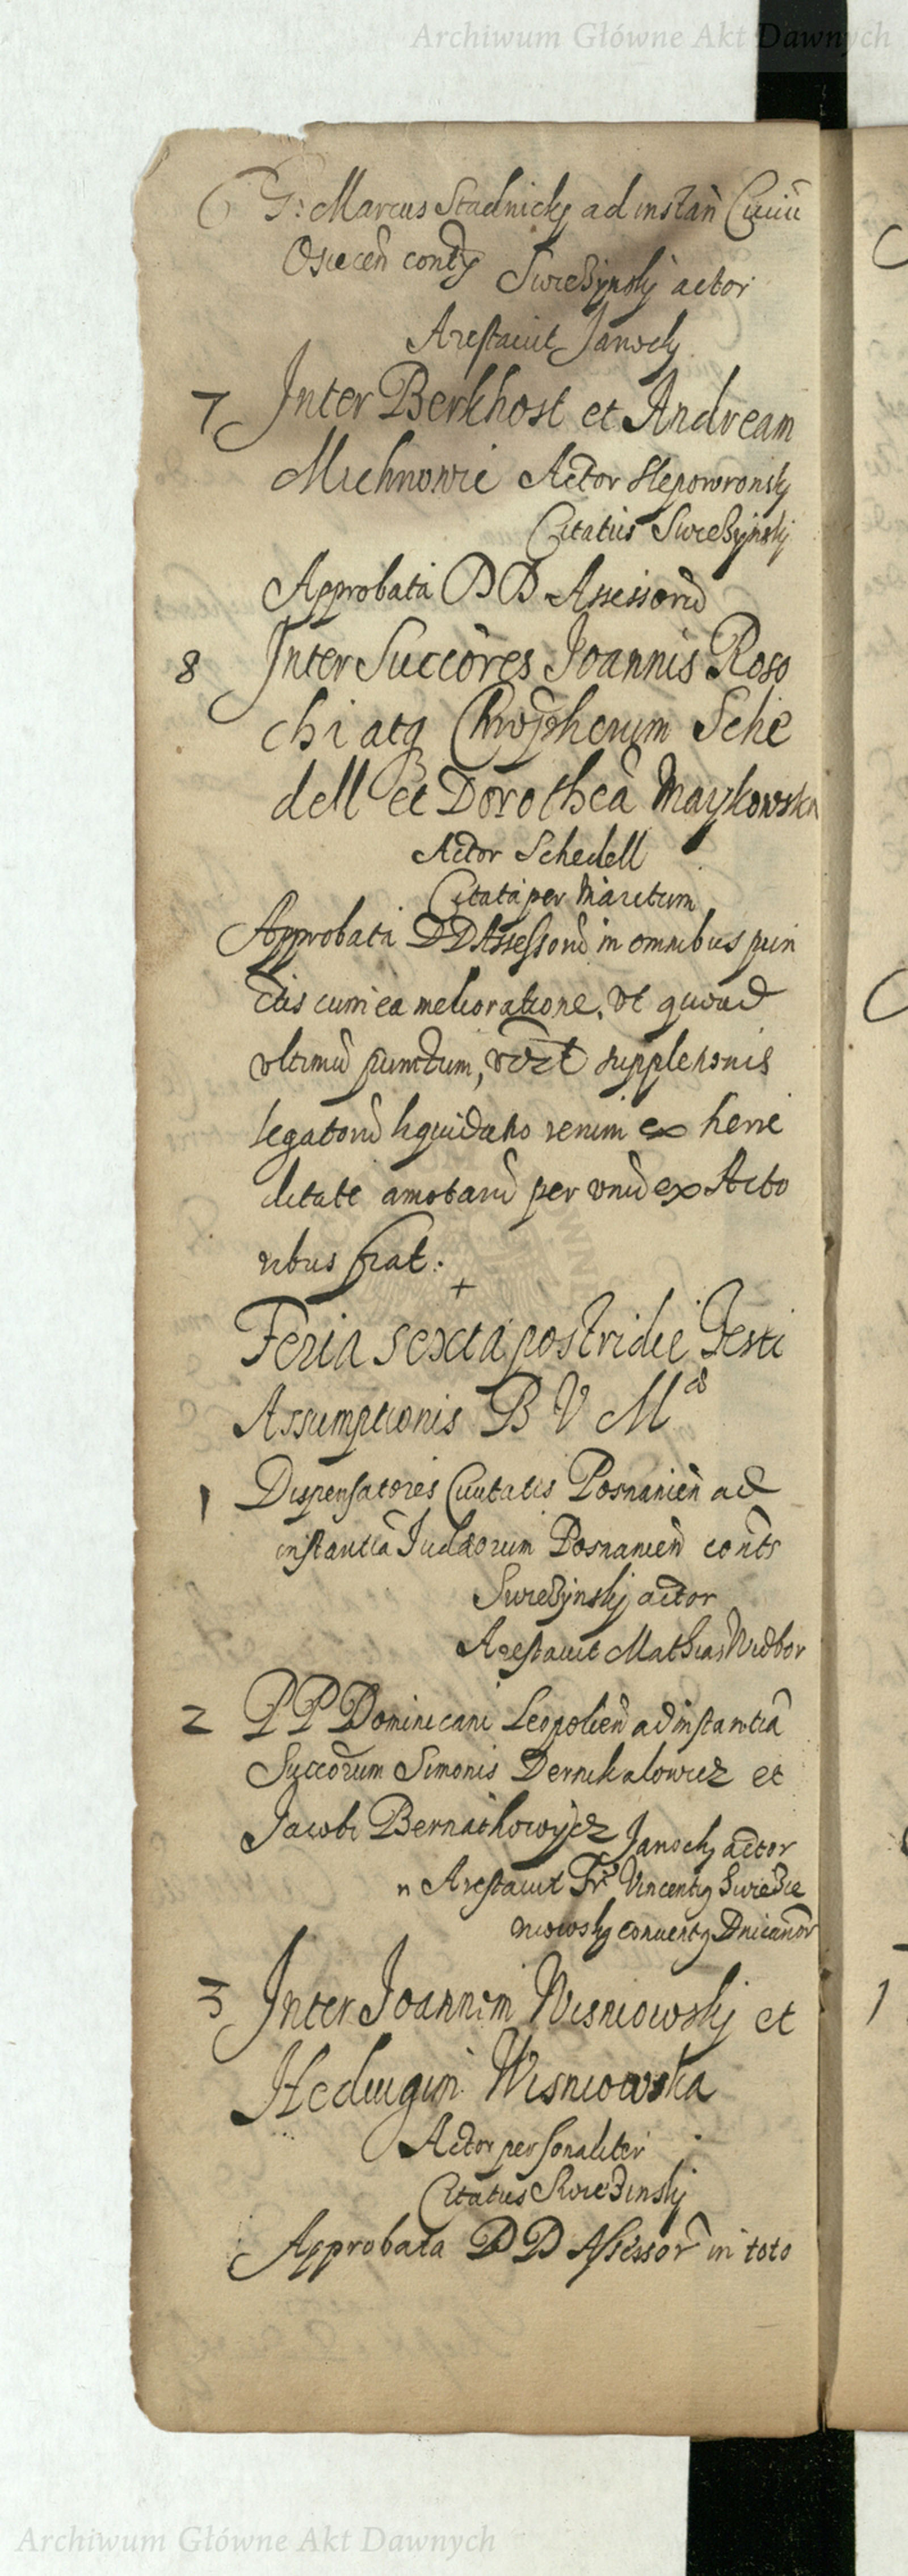 Archiwum Główne Akt Dawnych
6 G: Marcus Stadnicky ad instan̄ Ciuiū
Osiecen̄ conts
Swieżynskj actor
Arestauit Janocky
7 Inter Berkhost et Andream
Michnowic Actor Slepowronskj
Citatus Swieżynskj
Approbata DD Assessorū
8 Inter Succōres Joannis Roso
chi atq Chrōpherum Sche
dell et Dorotheā Maykowska
Actor Schedell
Citata per Maritum
Approbata DD Assessorū in omnibus pun
ctis cum ea melioratione, vt quoad
vltimū punctum, vdzt suppletionis
legatorū liquidatio rerum ex herre
ditate amotarū per vnū ex Acto
ribus fiat.
+
Feria sexta postridie Festi
Assumptionis B V M
1 Dispensatores Ciuitatis Posnanien̄ ad
instantiā Judæorum Posnanien̄ conts
Swieżynskj actor
Arestauit Mathias Widbor
2 PP Dominicani Leopolien̄ ad instantiā
Succōrum Simonis Dernikalowicz et
Jacobi Bernathowycz Janocky actor
n Arestauit Fr Vincenty Swieżie
niowsky conuent9 Dnicanor̄
3 Inter Joannem Wisniowskj et
Heduigim Wisniowska
Actor personaliter
Citatus Swieżinskj
Approbata DD Assessor̄ in toto
Archiwum Główne Akt Dawnych